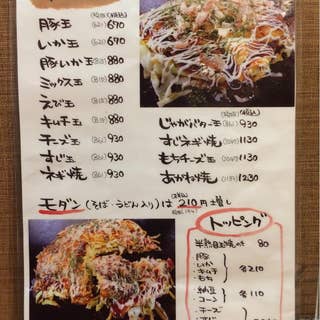 豚玉 690
いか玉 690
豚いか玉 880
ミックス玉 880
えび玉 880
キムチ玉 880
チーズ玉 930
すじ玉 930
ネギ焼 930
じゃがバター玉 1130
すじネギ焼 1130
もちチーズ玉 1130
あかね焼 1230
モダン(そば・うどん入り)は210円増し
トッピング
半熟目玉焼のせ 80
豚
いか
キムチ
もち
各210
納豆
コーン
各110
チーズ